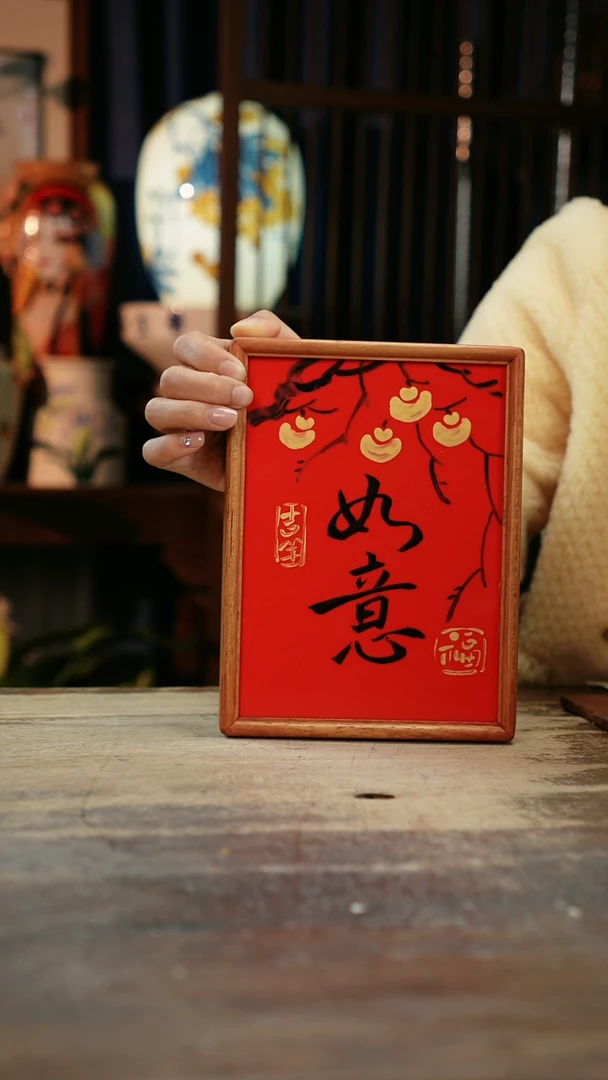 如
意
吉年
福